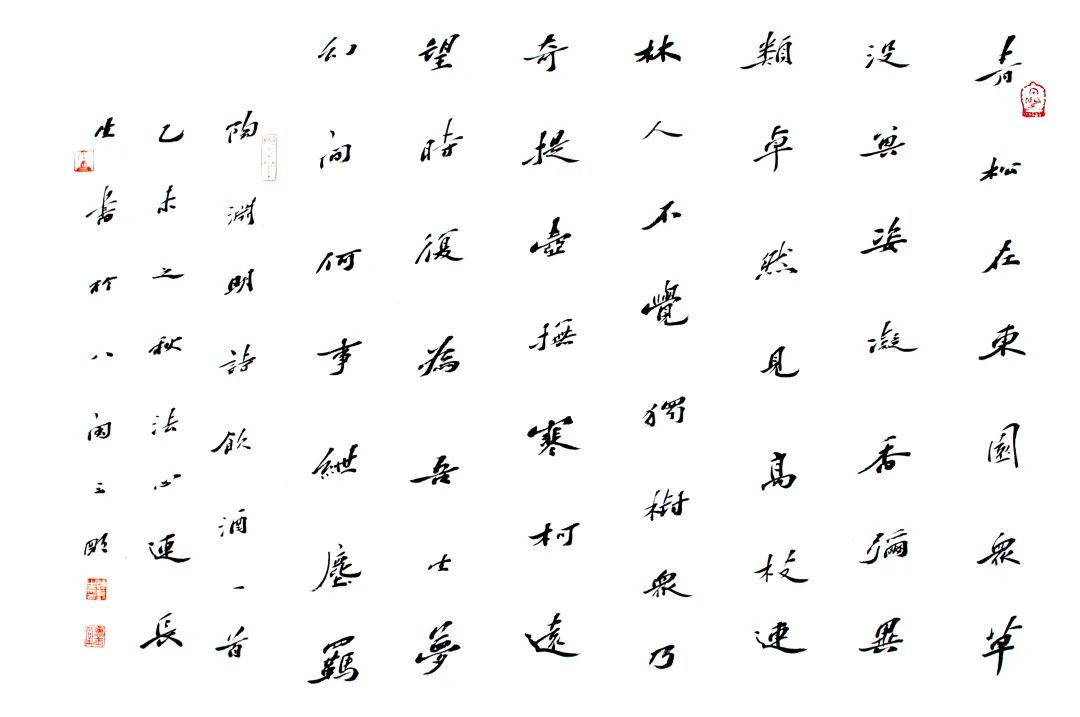 青松在東園衆草
没其姿凝香彌異
類卓然見高枝連
林人不覺獨樹衆乃
奇提壺撫寒柯遠
望時復為吾生夢
幻间何事紲塵羈
陶淵明詩飲酒一首
乙未之秋法心連長
生書於八閩三明